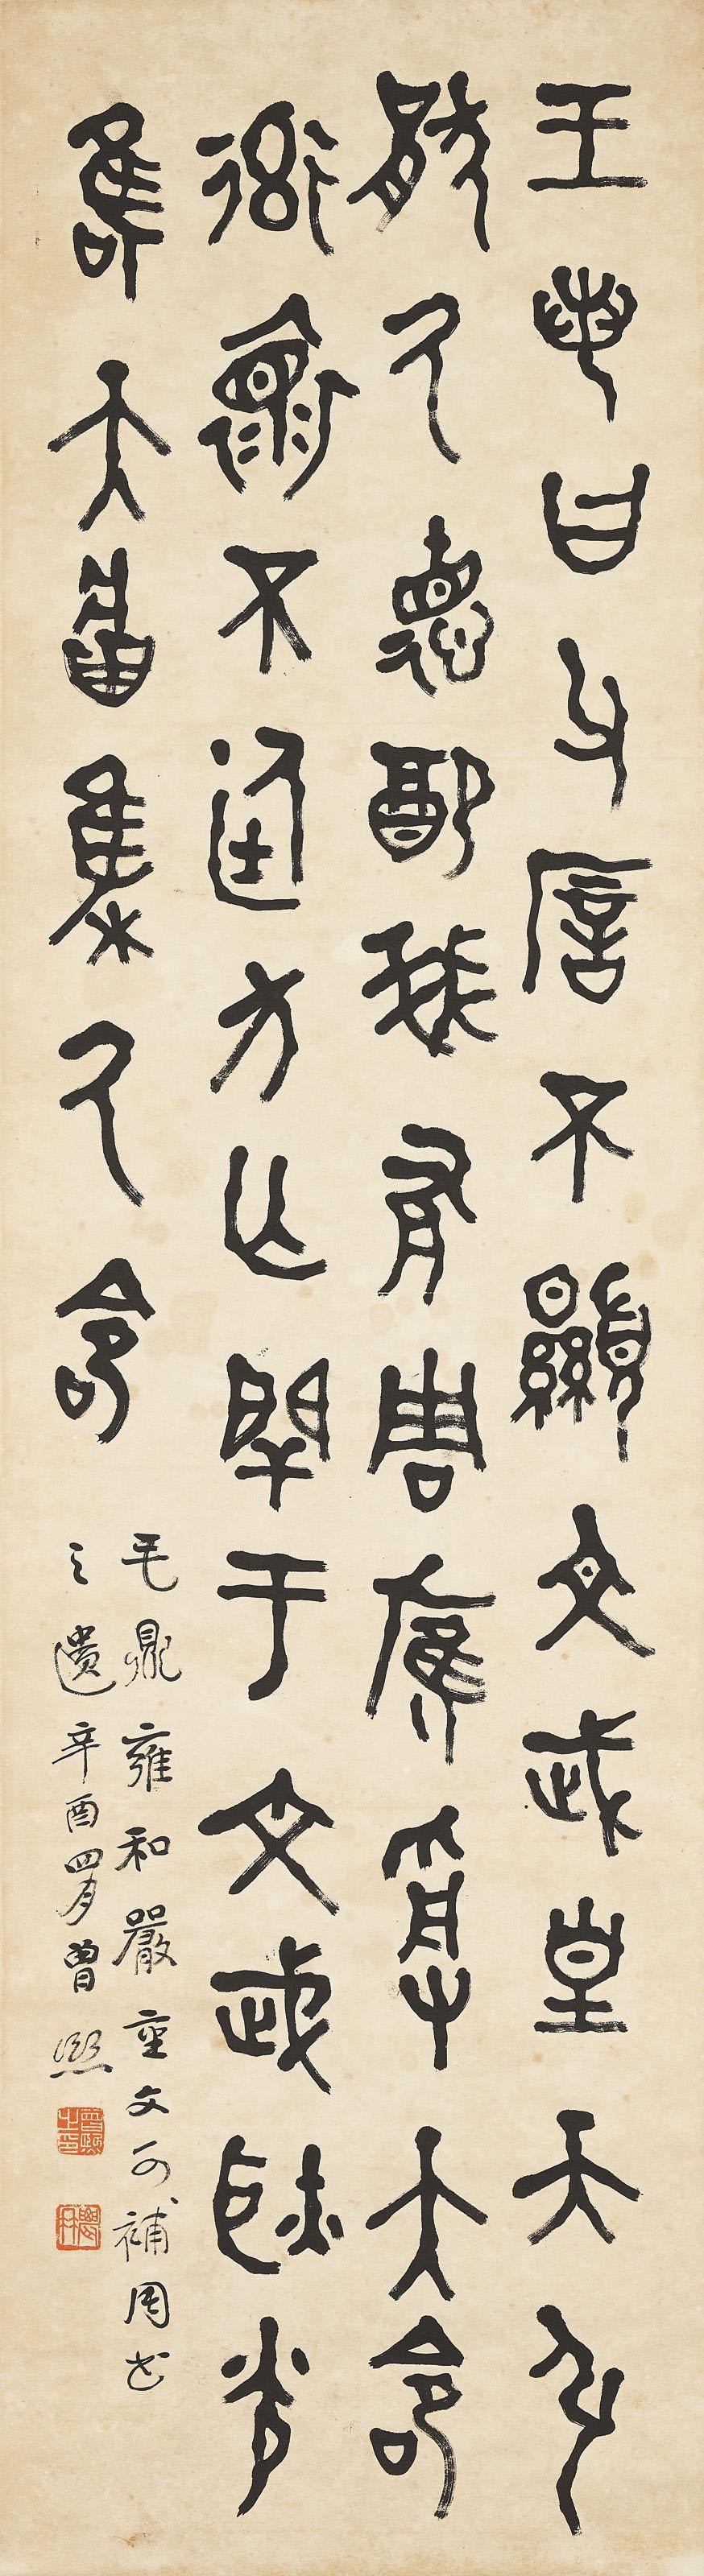 王若曰父㕂不顯文武皇天弘
猒氒德配我有周雁受大命
率褱不廷方亡閈于文武耿光
唯天𤖕集氒命
毛鼎雍和嚴重文可補周書
之遺辛酉四月曾熙
曾熙之印
農髯